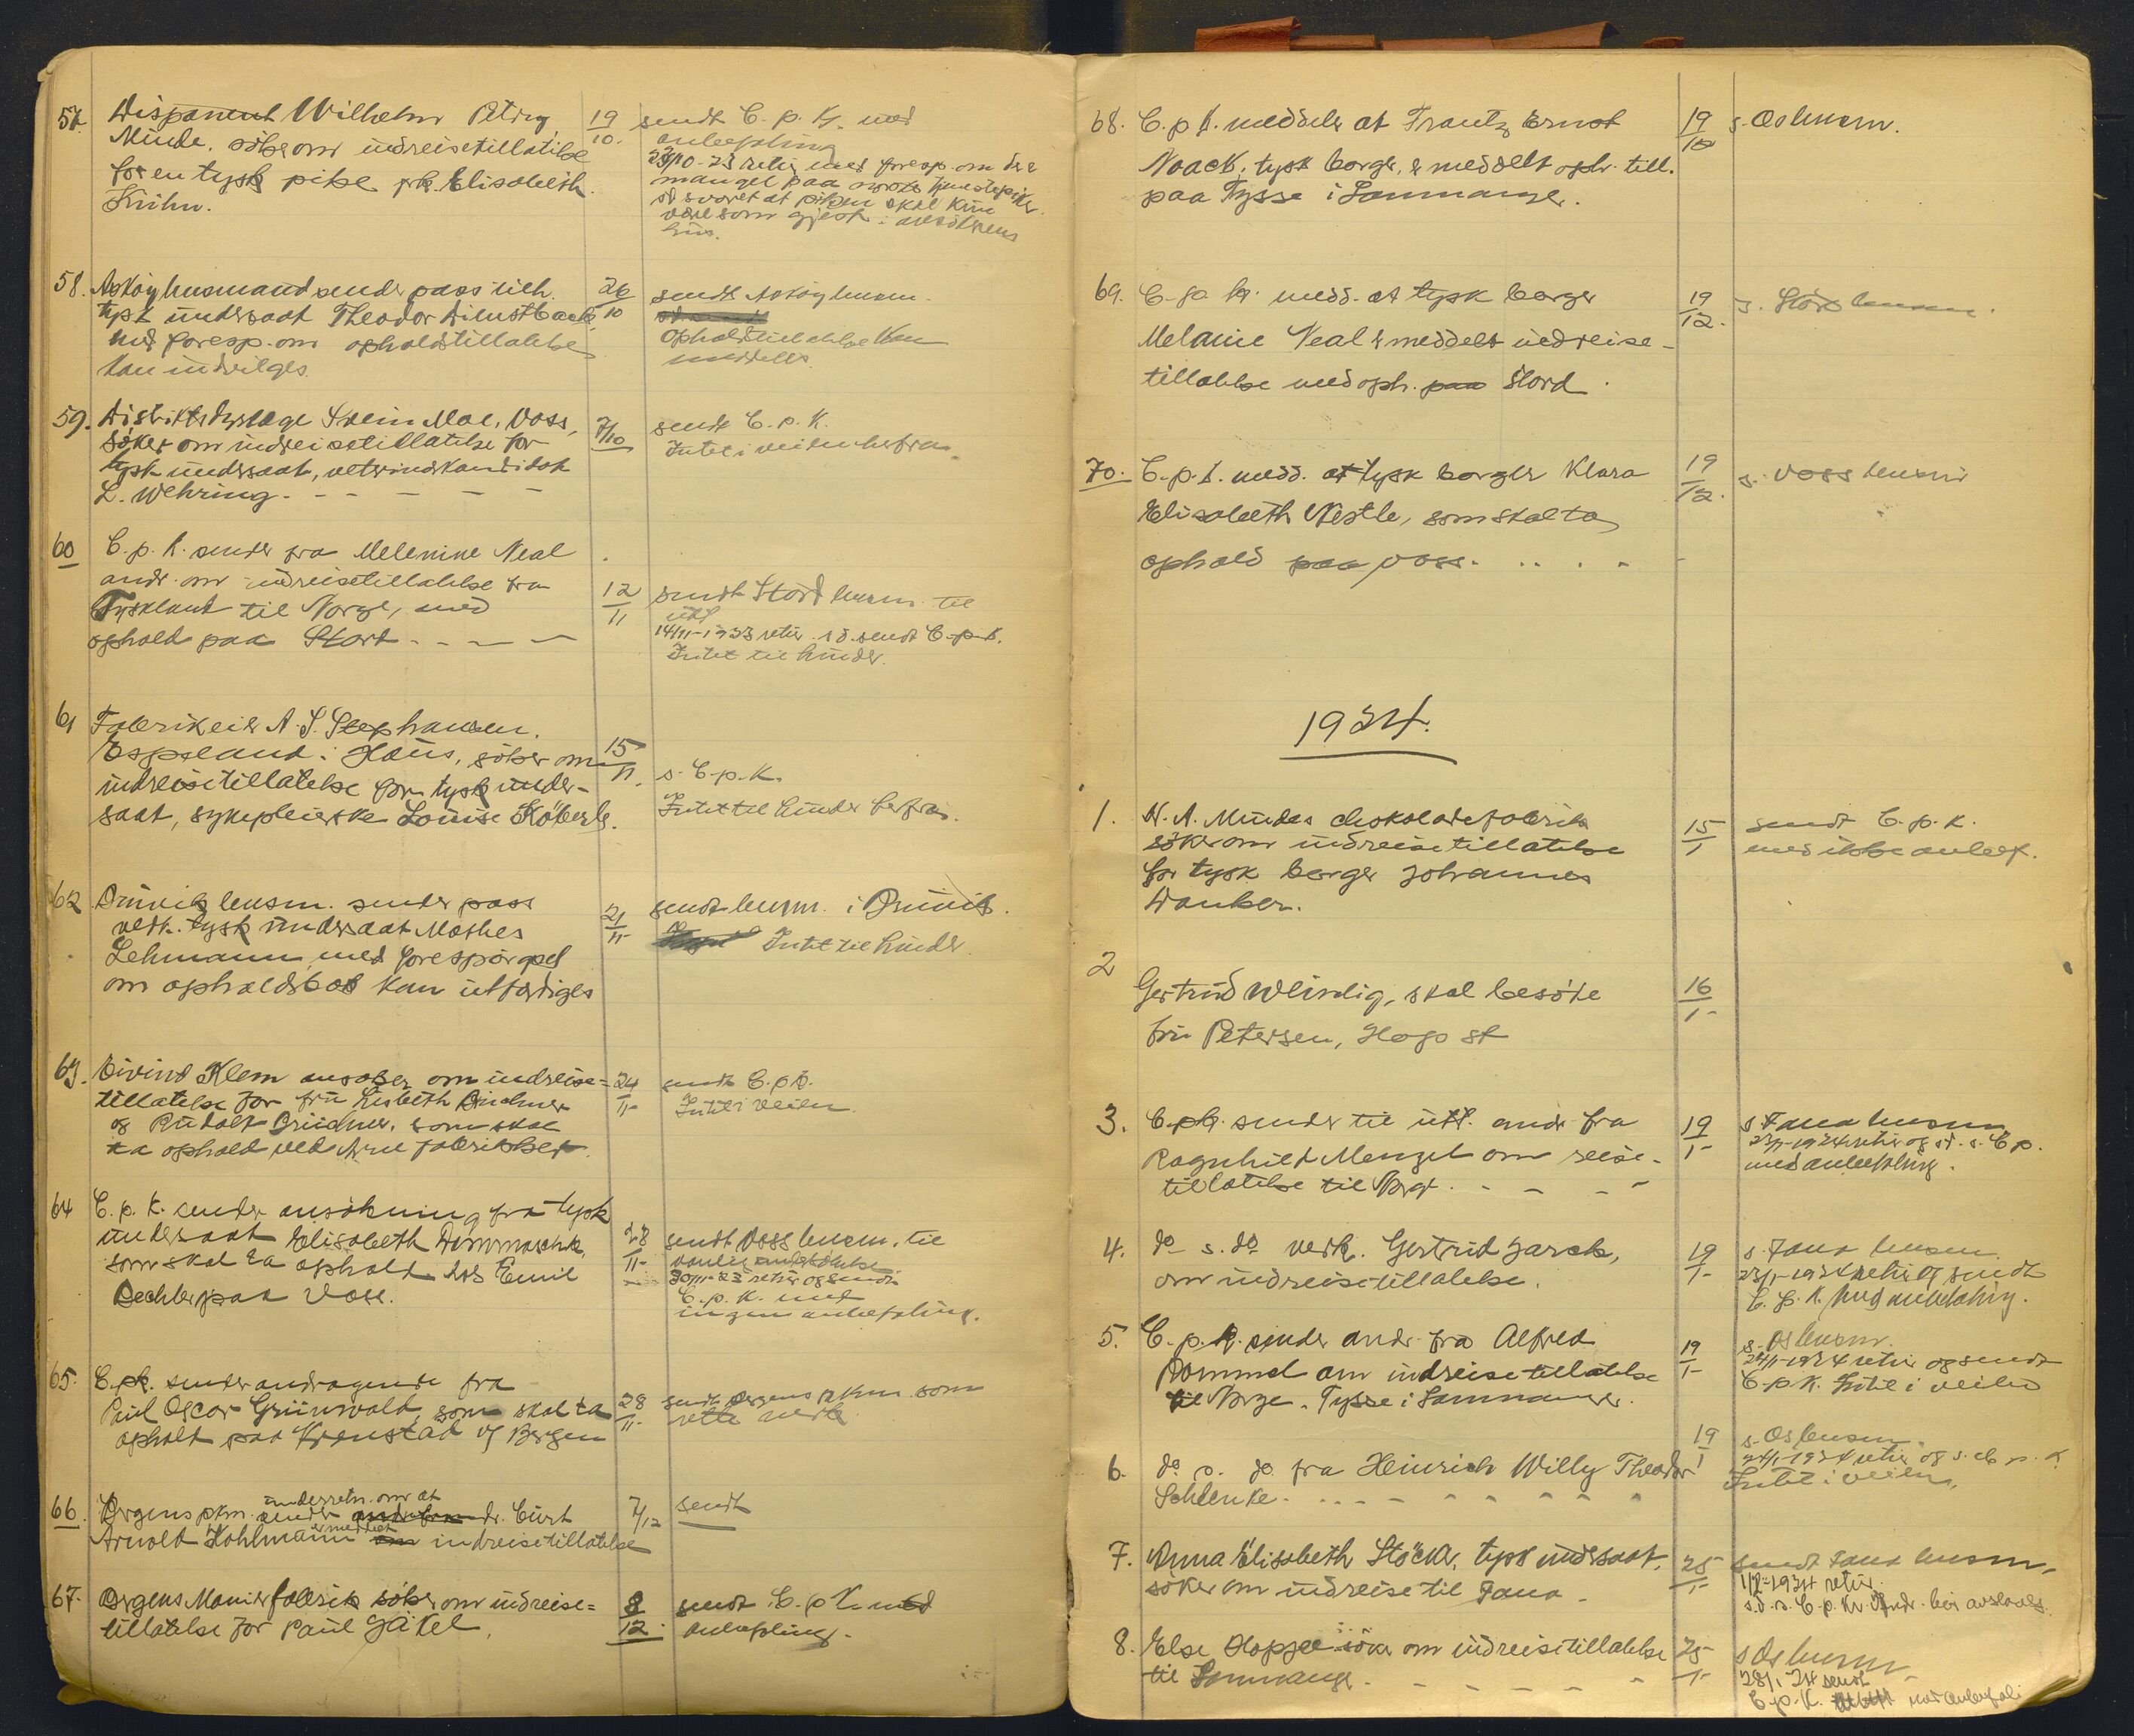 57. Disponent Wilhelm Petry
Minde, söker om indreisetillatelse
for en tysk pike frk. Elisabeth
Kühn.
19/10. sendt C. p. K. med
anbefaling
23/10-23 retur med foresp. om det er
mangel paa norske tjenestepiker.
sd svaret at piken skal kun
være som gjest i ansökerens
hus.
58. Asköy lensmand sender pass tilh.
tysk undersaat Theodor Dienstbach
med foresp. om opholdstillatelse
kan indvilges.
26/10 sendt Asköy lensm.
Opholdstillatelse kan
meddeles.
59. Distriktsdyrlæge Svein Moe, Voss,
söker om indreisetillatelse for
tysk undersaat, veterinærkandidat
L. Wehring. - - - - -
7/10 sendt C. p. K.
Intet i veien herfra.
60 C. p. K. sender fra Melenine Neal
andr. om indreisetillatelse fra
Tyskland til Norge, med
ophold paa Stord - - - -
12/11 sendt Stord lensm. til
utt.
14/11-1923 retur. s.d. sendt C.p.K.
Intet til hinder.
61 Fabrikeier A. S. Stephansen.
Espeland i Haus, söker om
indreisetillatelse for tysk under-
saat, sykepleierske Louise Köberle.
15/11. s. C.p.K.
Intet til hinder herfra.
62 Bruvik lensm. sender pass
vedk. tysk undersaat Mathes
Lehmann med forespörgsel
om opholdsbok kan utferdiges
21/11 sendt lensm. i Bruvik.
Intet til hinder
63. Eivind Klem ansöker om indreise=
tillatelse for fru Lisbeth Brückner
og Rudolf Brückner, som skal
ta ophold ved Arne fabrikker.
24/11 sendt C.p.K.
Intet i veien
64 C. p. K. sender ansökning fra tysk
undersaat Elisabeth Dommaschk,
som skal ta ophold hos Emil
Dechler paa Voss.
28/11 sendt Voss lensm. til
vanlig undersökelse.
30/11-23 retur og sendt
C. p. K. med
ingen anbefaling.
65. C.p.K. sender andragende fra
Paul Oscar Grünwald som skal ta
ophold paa Kronstad v/ Bergen
28/11 sendt Bergens pkm. som
rette vedk.
66. Bergens pkm. sender underretn. om at dr. Curt
Arnold Kohlmann er meddelt indreisetillatelse
7/12 sendt
67. Bergens Manierfabrik söker om indreise=
tillatelse for Paul Jäkel.
8/12. sendt C. p K. med
anbefaling.
68. C. p K. meddeler at Frantz Ernst
Noack, tysk borger, er meddelt oph. till.
paa Tysse i Samnanger.
19/10 s. Os lensm.
69. C. p. K. medd. at tysk borger
Melanie Neal er meddelt indreise-
tillatelse med oph. paa Stord.
19/12. s. Stord lensm.
70. C.p.K. medd. at tysk borger Klara
Elisabeth Nestle, som skal ta
ophold paa Voss. . . . . -
19/12. s. Voss lensm
1924.
1. N. A. Mindes chokoladefabrik
söker om indreisetillatelse
for tysk borger Johannes
Danker.
15/1 sendt C. p. K.
med ikke anbef.
2 Gertrud Weindig, skal besöke
fru Petersen, Hop st
16/1-
3. C.p.K. sender til utt. andr. fra
Ragnhild Menzel om reise-
tillatelse til Norge. - - - -
19/1- s Fana lensm
23/1-1924 retur og sd. s. C p.
med anbefaling.
4. do s. do vedk. Gertrud Jarck,
om indreisetillatelse.
19/1- s. Fana lensm.
23/1-1924 retur og sendt
C. p. K. med anbefaling.
5. C. p. K. sender andr. fra Alfred
Rommel om indreisetillatelse
til Norge. Tysse i Samnanger.
19/1- s. Os lensm.
24/1-1924 retur og sendt
C.p.K. Intet i veien
6. do s. do fra Heinrich Willy Theodor
Schlenke. . . . - - - - -
19/1 s. Os lensm.
24/1-1924 retur og s. C. p. K
Intet i veien.
7. Anna Elisabeth Stöckl, tysk undersaat,
söker om indreise til Fana.
25/1- sendt Fana lensm.
1/2-1924 retur.
s.d. s. C. p. K. Andr. bör avslaaes.
8. Else Hopfe söker om indreisetillatelse
til Samnanger. - - - - -
25/1- s Os lensm.
28/1 24 sendt
C.p.K. med anbefali